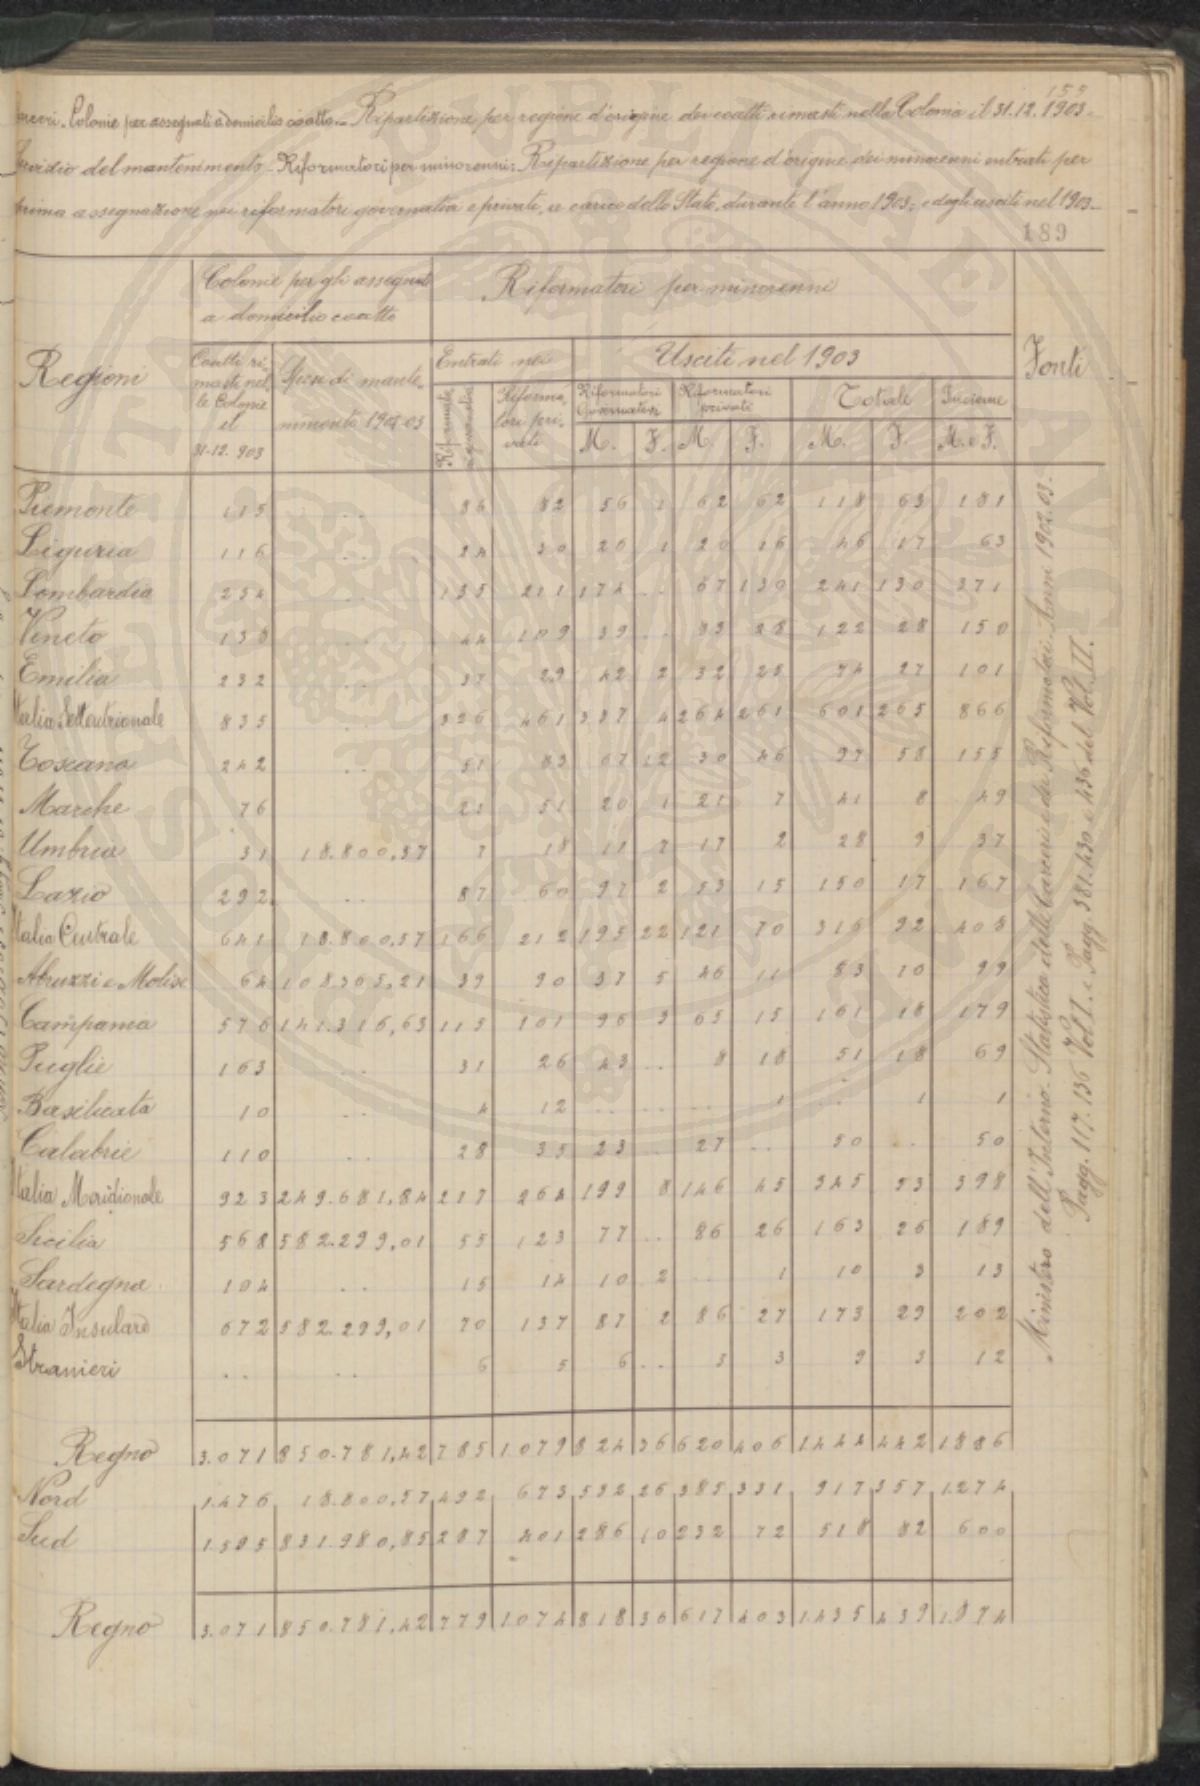 155
Colonie per assegnati a domicilio coatto. - Ripartizione per regione d'origine dei coatti rimasti nelle Colonie il 31.12.1903.
del mantenimento - Riformatori per minorenni: Ripartizione per regione d'origine dei minorenni entrati per
prima assegnazione nei riformatori governativi e privati, a carico dello Stato, durante l'anno 1903, e degli usciti nel 1903
189
Regioni
Colonie per gli assegnati
a domicilio coatto
Riformatori per minorenni
Fonti
Coatti ri-
masti nel-
le Colonie
il
31-12.903
Spese di mante-
nimento 1902-03
Entrati nei
Usciti nel 1903
Riforma-
tori pri-
vati
Riformatori Governativi
Riformatori privati
Totale
Insieme
M. F. M. F. M. F. M. e F.
Piemonte 115 .. 86 82 56 1 62 62 118 63 181
Liguria 116 .. 24 30 26 1 20 16 46 17 63
Lombardia 254 .. 135 211 174 .. 67 130 241 130 371
Veneto 138 .. 44 109 39 .. 83 28 122 28 150
Emilia 232 .. 37 29 42 2 32 25 74 27 101
Italia Settentrionale 835 .. 326 461 337 4 264 261 601 265 866
Toscana 242 .. 51 83 67 12 30 46 97 58 155
Marche 76 21 51 20 1 21 7 41 8 49
Umbria 31 18.800,57 7 18 11 7 17 2 28 9 37
Lazio 292 .. 87 60 97 2 53 15 150 17 167
Italia Centrale 641 18.800,57 166 212 195 22 121 70 316 92 408
Abruzzi e Molise 64 108365,21 39 90 37 5 46 11 83 10 99
Campania 576 141.316,63 115 101 96 3 65 15 161 18 179
Puglie 163 .. 31 26 43 .. 8 18 51 18 69
Basilicata 10 .. 4 12 .. .. .. 1 .. 1 1
Calabrie 110 .. 28 35 23 .. 27 .. 50 .. 50
Italia Meridionale 923 249.681,84 217 264 199 8 146 45 345 53 398
Sicilia 568 582.299,01 55 123 77 .. 86 26 163 26 189
Sardegna 104 .. 15 14 10 2 .. 1 10 3 13
Italia Insulare 672 582.299,01 70 137 87 2 86 27 173 29 202
Stranieri .. .. 6 5 6 .. 3 3 9 3 12
Regno 3.071 850.781,42 785 1.079 824 36 620 406 1.444 442 1.886
Nord 1.476 18.800,57 492 673 532 26 385 331 917 357 1.274
Sud 1.595 831.980,85 287 401 286 10 232 72 518 82 600
Regno 3.071 850.781,42 779 1.074 818 36 617 403 1.435 439 1.874
Ministero dell'Interno. Statistica delle Carceri e dei Riformatori. Anni 1902.03.
Pagg. 117.136 Vol. I. e Pagg. 381.430 e 436 del Vol. II.